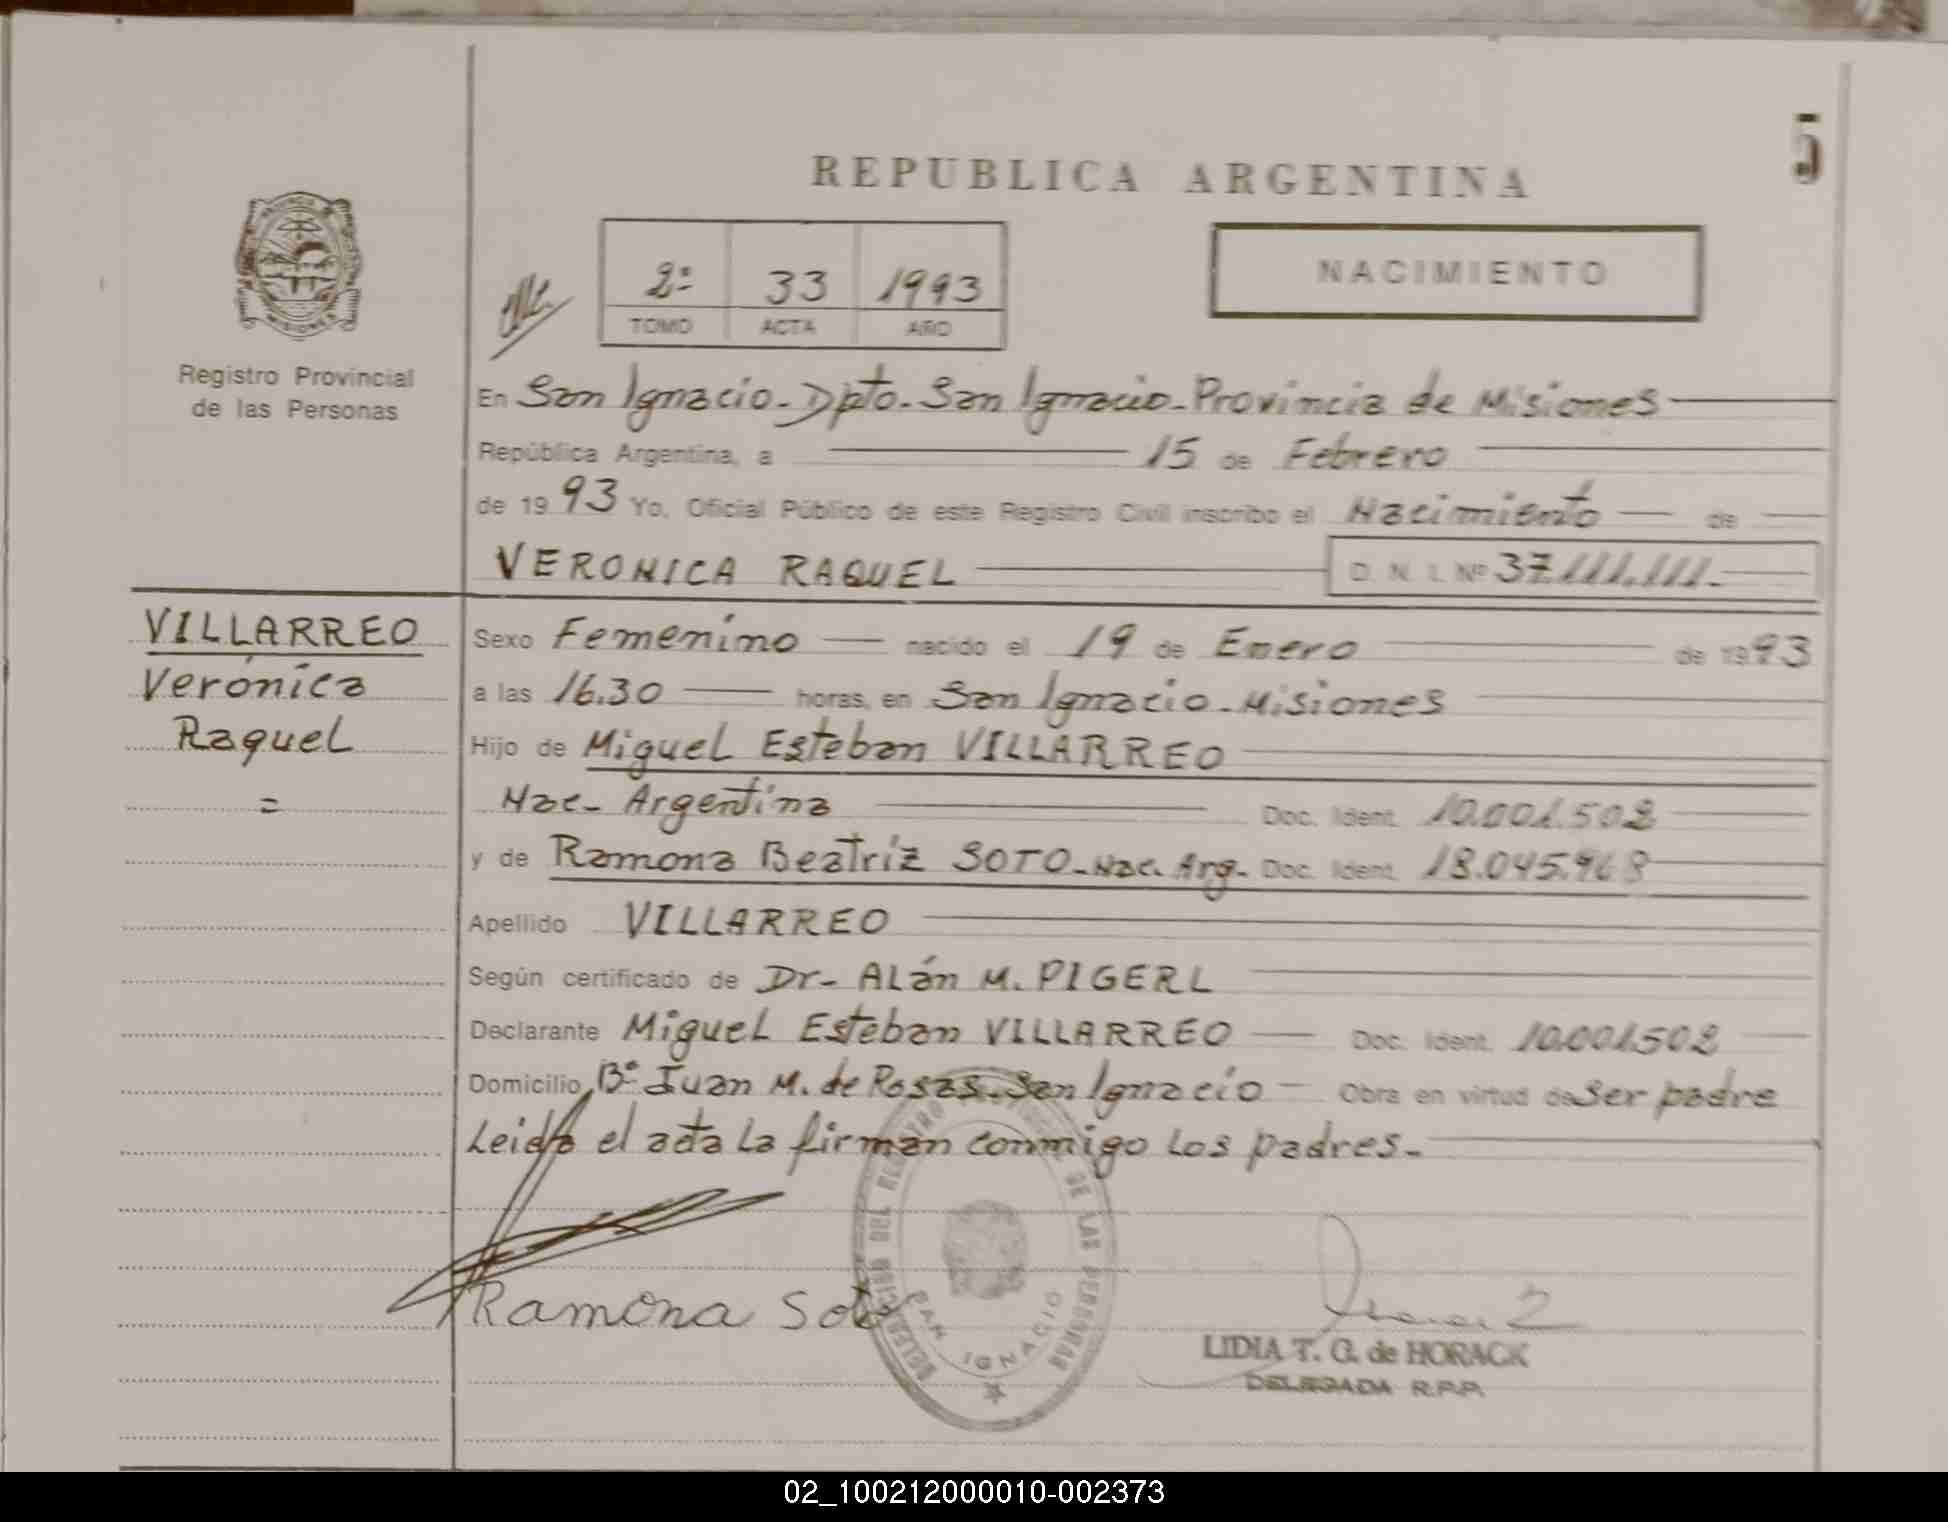 5
REPUBLICA ARGENTINA
PROVINCIA DE
MISIONES
Registro Provincial
de las Personas
2º 33 1993
TOMO ACTA AÑO
NACIMIENTO
En San Ignacio - Dpto. San Ignacio - Provincia de Misiones
República Argentina, a 15 de Febrero
de 1993 Yo, Oficial Público de este Registro Civil inscribo el Nacimiento de
VERONICA RAQUEL D. N. I. Nº 37.111.111.
VILLARREO
Verónica
Raquel
=
Sexo Femenino nacido el 19 de Enero de 1993
a las 16.30 horas, en San Ignacio - Misiones
Hijo de Miguel Esteban VILLARREO
Nac- Argentina Doc. Ident. 10.001.502
y de Ramona Beatríz SOTO - Nac. Arg. Doc. Ident. 18.045.968
Apellido VILLARREO
Según certificado de Dr- ALán M. PIGERL
Declarante MigueL Esteban VILLARREO Doc. Ident. 10.001.502
Domicilio Bº Juan M. de Rosas. San Ignacio - Obra en virtud de Ser padre
Leida el acta La firman conmigo Los padres.-
Ramona Soto
DE LAS PERSONAS
SAN IGNACIO
LIDIA T. G. de HORACK
DELEGADA R.P.P.
02_100212000010-002373